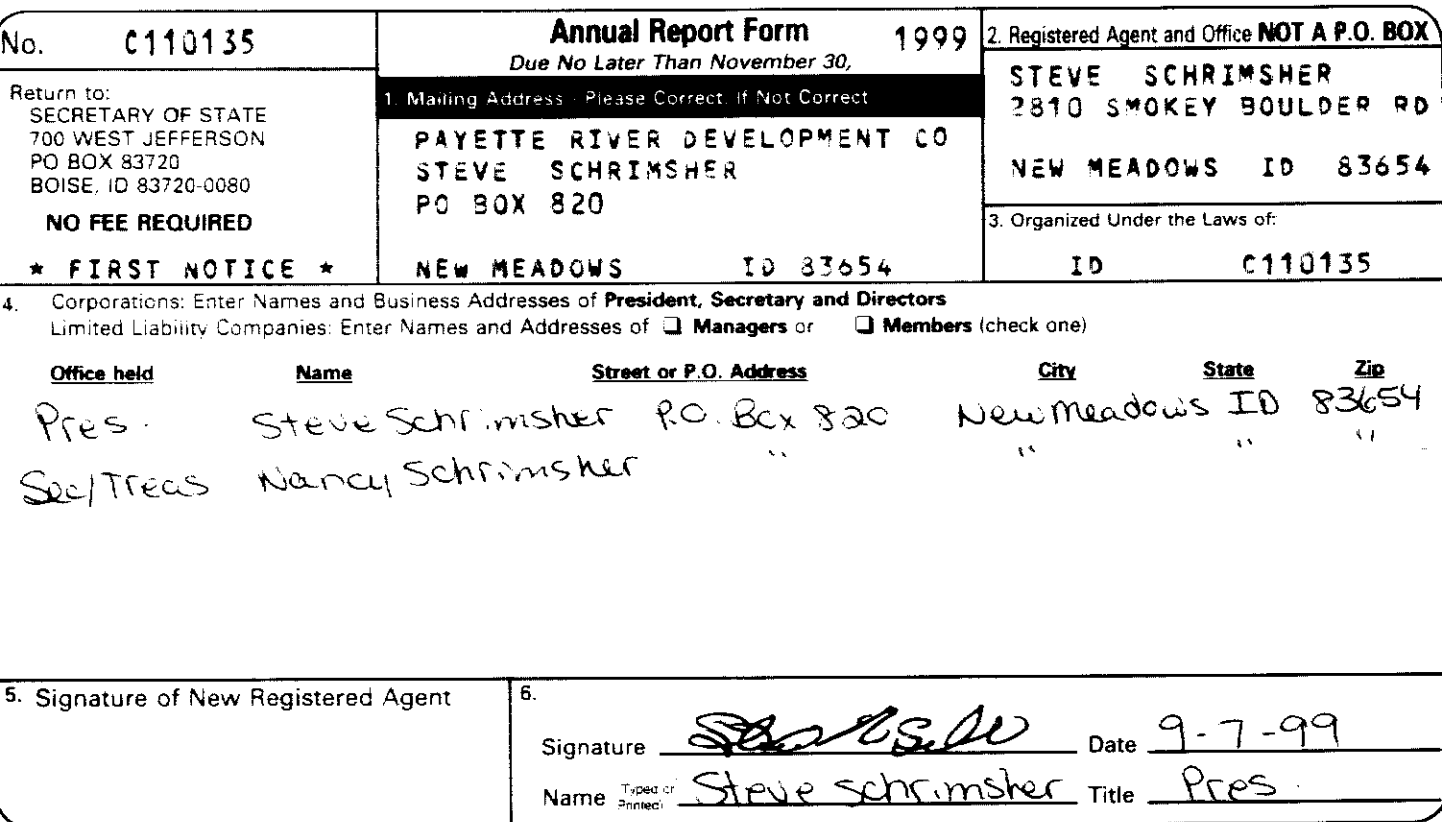 No. C110135
Return to:
SECRETARY OF STATE
700 WEST JEFFERSON
PO BOX 83720
BOISE, ID 83720-0080
NO FEE REQUIRED
* FIRST NOTICE *
Annual Report Form 1999
Due No Later Than November 30,
1. Mailing Address - Please Correct, If Not Correct
PAYETTE RIVER DEVELOPMENT CO
STEVE SCHRIMSHER
PO BOX 820
NEW MEADOWS ID 83654
2. Registered Agent and Office NOT A P.O. BOX
STEVE SCHRIMSHER
2810 SMOKEY BOULDER RD
NEW MEADOWS ID 83654
3. Organized Under the Laws of:
ID C110135
4. Corporations: Enter Names and Business Addresses of President, Secretary and Directors
Limited Liability Companies: Enter Names and Addresses of ❑ Managers or ❑ Members (check one)
Office held Name Street or P.O. Address City State Zip
Pres. Steve Schrimsher P.O. Box 820 New Meadows ID 83654
Sec/Treas Nancy Schrimsher " " " "
5. Signature of New Registered Agent
6.
Signature Date 9-7-99
Name (Typed or Printed) Steve Schrimsher Title Pres.